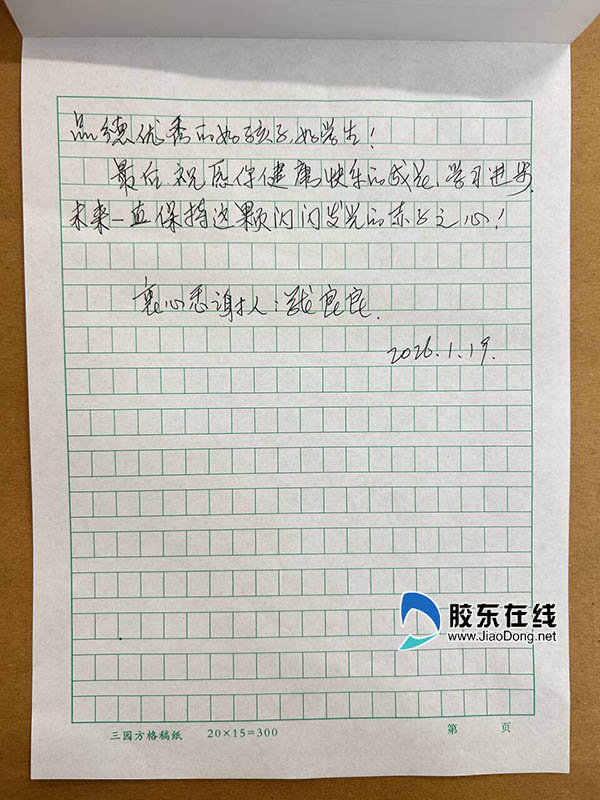 品德优秀的好孩子,好学生!
最后祝愿你健康快乐的成长,学习进步,
未来一直保持这颗闪闪发光的赤子之心!
衷心感谢人:
2026.1.19.
胶东在线
www.JiaoDong.net
三园方格稿纸 20×15=300 第 页